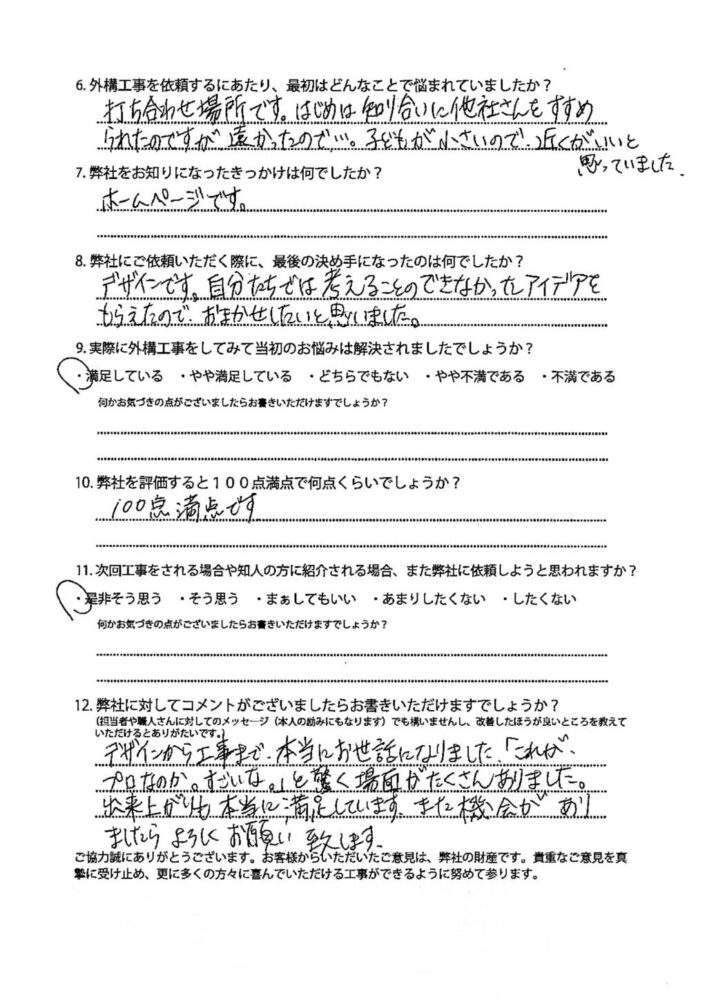 6. 外構工事を依頼するにあたり、最初はどんなことで悩まれていましたか？
打ち合わせ場所です。はじめは知り合いに他社さんをすすめ
られたのですが遠かったので…。子どもが小さいので、近くがいいと
思っていました。
7. 弊社をお知りになったきっかけは何でしたか？
ホームページです。
8. 弊社にご依頼いただく際に、最後の決め手になったのは何でしたか？
デザインです。自分たちでは考えることのできなかったアイデアを
もらえたので、おまかせしたいと思いました。
9. 実際に外構工事をしてみて当初のお悩みは解決されましたでしょうか？
・満足している ・やや満足している ・どちらでもない ・やや不満である ・不満である
何かお気づきの点がございましたらお書きいただけますでしょうか？
10. 弊社を評価すると１００点満点で何点くらいでしょうか？
100点満点です
11. 次回工事をされる場合や知人の方に紹介される場合、また弊社に依頼しようと思われますか？
・是非そう思う ・そう思う ・まぁしてもいい ・あまりしたくない ・したくない
何かお気づきの点がございましたらお書きいただけますでしょうか？
12. 弊社に対してコメントがございましたらお書きいただけますでしょうか？
（担当者や職人さんに対してのメッセージ（本人の励みにもなります）でも構いませんし、改善したほうが良いところを教えて
いただけるとありがたいです。）
デザインから工事まで、本当にお世話になりました。「これが、
プロなのか。すごいな。」と驚く場面がたくさんありました。
出来上がりも本当に満足しています。また機会があり
ましたらよろしくお願い致します。
ご協力誠にありがとうございます。お客様からいただいたご意見は、弊社の財産です。貴重なご意見を真
摯に受け止め、更に多くの方々に喜んでいただける工事ができるように努めて参ります。